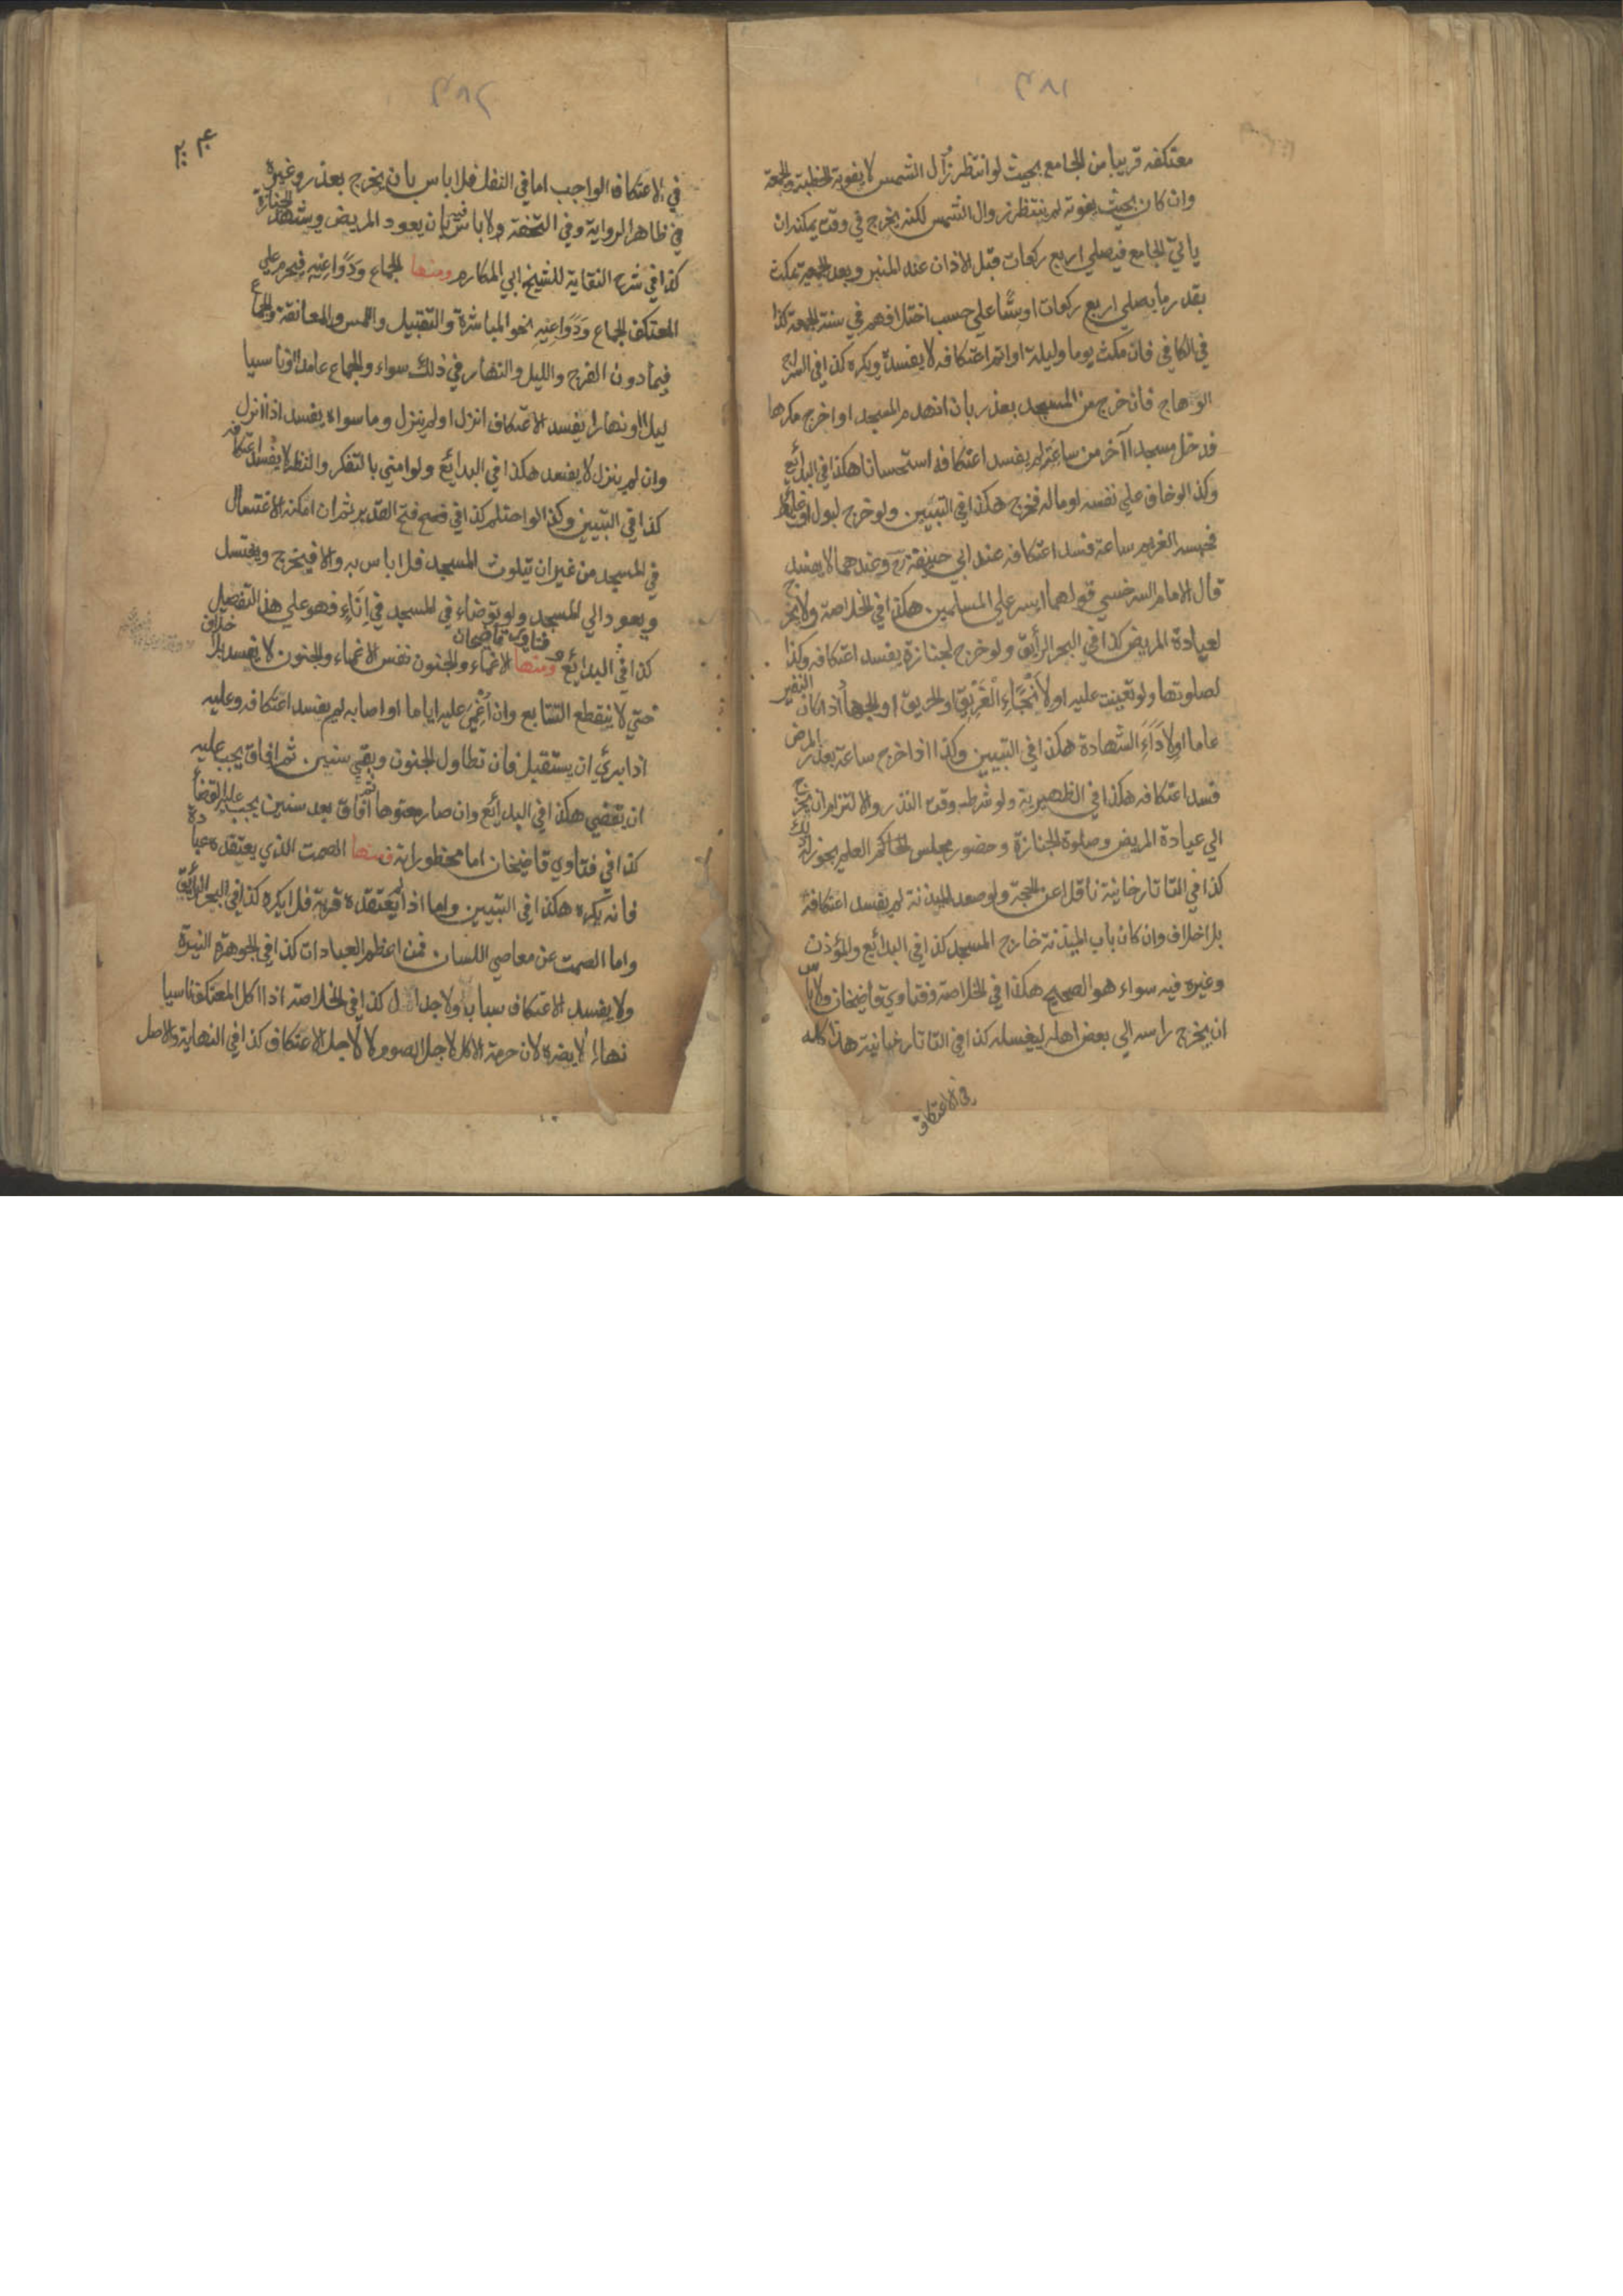 ٣٨١
معتكفه قريبا من الجامع بحيث لو انتظر زوال الشمس لا يفوته الخطبة والجمعة
وان كان بحيث يفوته لم ينتظر زوال الشمس لكنه يخرج في وقت يمكنه ان
ياتي الجامع فيصلي اربع ركعات قبل الاذان عند المنبر وبعد الجمعة يمكث
بقدر ما يصلي اربع ركعات او ستا علي حسب اختلافهم في سنة الجمعة كذا
في الكافي فان مكث يوما وليلة او اتم اعتكافه لا يفسد ويكره كذا في السراج
الوهاج فان خرج من المسجد بعذر بان انهدم المسجد او اخرج مكرها
فدخل مسجدا آخر من ساعته لم يفسد اعتكافه استحسانا هكذا في البدائع
وكذا لو خاف علي نفسه او ماله فخرج هكذا في التبيين ولو خرج لبول او غائط
فحبسه الغريم ساعة فسد اعتكافه عند ابي حنيفة رح وعندهما لا يفسد
قال الامام السرخسي قولهما ايسر علي المسلمين هكذا في الخلاصة ولا يخرج
لعيادة المريض كذا في البحر الرائق ولو خرج لجنازة يفسد اعتكافه وكذا
لصلوتها ولو تعينت عليه او لانجاء الغريق او الحريق او الجهاد اذا كان النفير
عاما او لاداء الشهادة هكذا في التبيين وكذا اذا خرج ساعة بعذر المرض
فسد اعتكافه هكذا في الظهيرية ولو شرط وقت النذر والالتزام ان يخرج
الي عيادة المريض وصلوة الجنازة وحضور مجلس العلم يجوز له ذلك
كذا في التاتارخانية ناقلا عن الحجة ولو صعد الميذنة لم يفسد اعتكافه
بلا خلاف وان كان باب الميذنة خارج المسجد كذا في البدائع والمؤذن
وغيره فيه سواء هو الصحيح هكذا في الخلاصة وفتاوي قاضيخان ولا باس
ان يخرج راسه الي بعض اهله ليغسله كذا في التاتارخانية هذا كله
في الاعتكاف
٣٨٢
في الاعتكاف الواجب اما في النفل فلا باس بان يخرج بعذر وغيره
في ظاهر الرواية وفي التحفة ولا باس فيه بان يعود المريض ويشهد الجنازة
كذا في شرح النقاية للشيخ ابي المكارم ومنها الجماع ودواعيه فيحرم علي
المعتكف الجماع ودواعيه نحو المباشرة والتقبيل واللمس والمعانقة والجماع
فيما دون الفرج والليل والنهار في ذلك سواء والجماع عامدا او ناسيا
ليلا او نهارا يفسد الاعتكاف انزل او لم ينزل وما سواه يفسد اذا انزل
وان لم ينزل لا يفسد هكذا في البدائع ولو امني بالتفكر والنظر لا يفسد اعتكافه
كذا في التبيين وكذا لو احتلم كذا في فتح القدير ثم ان امكنه الاغتسال
في المسجد من غير ان يتلوث المسجد فلا باس به والا فيخرج ويغتسل
ويعود الي المسجد ولو توضاء في المسجد في اناء فهو علي هذا التفصيل
كذا في البدائع وفتاوي قاضيخان ومنها الاغماء والجنون نفس الاغماء والجنون لا يفسد بلا خلاف
حتي لا ينقطع التتابع وان اغمي عليه اياما او اصابه لمم يفسد اعتكافه وعليه
اذا ابري ان يستقبل فان تطاول الجنون وبقي سنين ثم افاق يجب عليه
ان يقضي هكذا في البدائع وان صار معتوها ثم افاق بعد سنين يجب عليه القضا
كذا في فتاوي قاضيخان اما محظوراته فمنها الصمت الذي يعتقده عبادة
فانه يكره هكذا في التبيين واما اذا لم يعتقده قربة فلا يكره كذا في البحر الرائق
واما الصمت عن معاصي اللسان فمن اعظم العبادات كذا في الجوهرة النيرة
ولا يفسد الاعتكاف سباب ولا جدال كذا في الخلاصة اذا اكل المعتكف ناسيا
نهارا لا يضره لان حرمة الاكل لاجل الصوم لا لاجل الاعتكاف كذا في النهاية والاصل